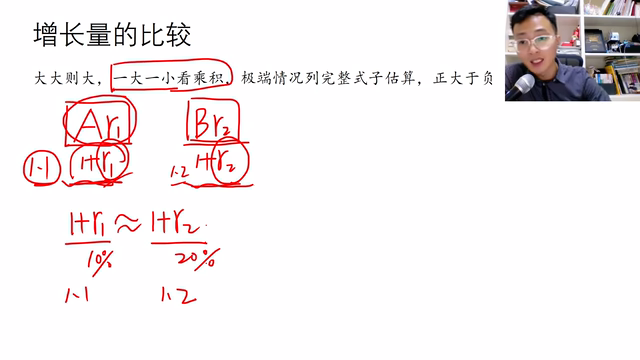 增长量的比较
大大则大，一大一小看乘积，极端情况列完整式子估算，正大于负
Ar₁ Br₂
1.1 1+r₁ 1.2 1+r₂
1+r₁ ≈ 1+r₂
10% 20%
1.1 1.2